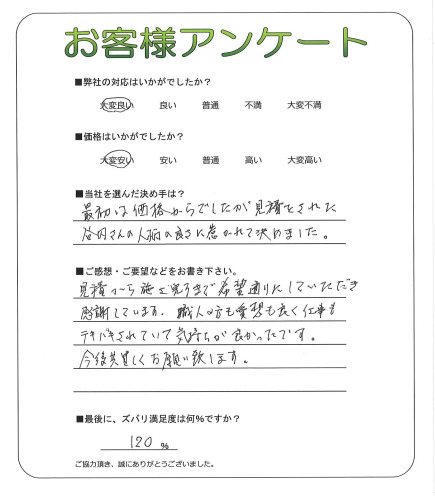 お客様アンケート
■弊社の対応はいかがでしたか？
大変良い 良い 普通 不満 大変不満
■価格はいかがでしたか？
大変安い 安い 普通 高い 大変高い
■当社を選んだ決め手は？
最初は価格からでしたが見積をされた
さんの人柄の良さに惹かれて決めました。
■ご感想・ご要望などをお書き下さい。
見積から施工完了まで希望通りにしていただき
感謝しています。職人の方も愛想も良く仕事も
テキパキされていて気持ちが良かったです。
今後共宜しくお願い致します。
■最後に、ズバリ満足度は何％ですか？
120 ％
ご協力頂き、誠にありがとうございました。